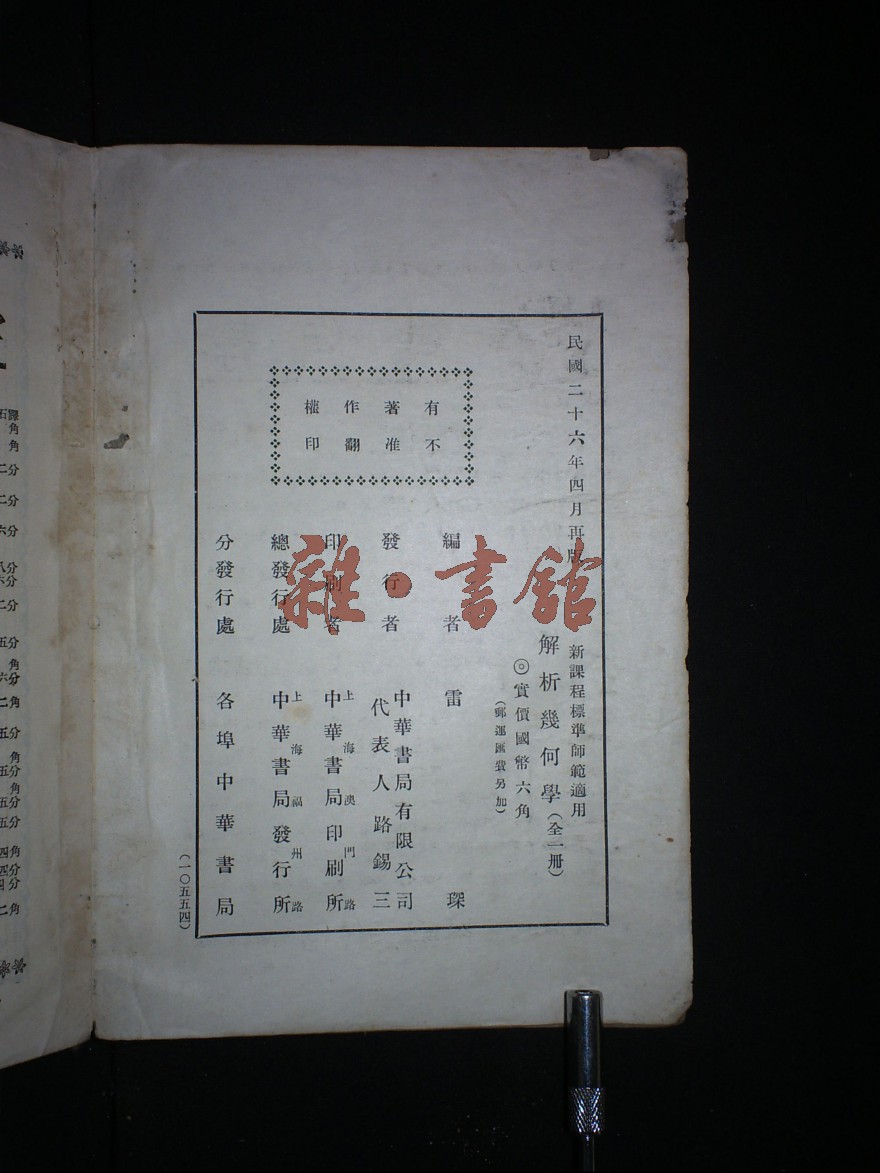 民國二十六年四月再版
新課程標準師範適用
解析幾何學(全一冊)
◎實價國幣六角
(郵運匯費另加)
有著作權
不准翻印
編者 雷琛
發行者 中華書局有限公司
代表人 路錫三
印刷者 上海澳門路
中華書局印刷所
總發行處 上海福州路
中華書局發行所
分發行處 各埠中華書局
(一〇五五四)
雜·書館